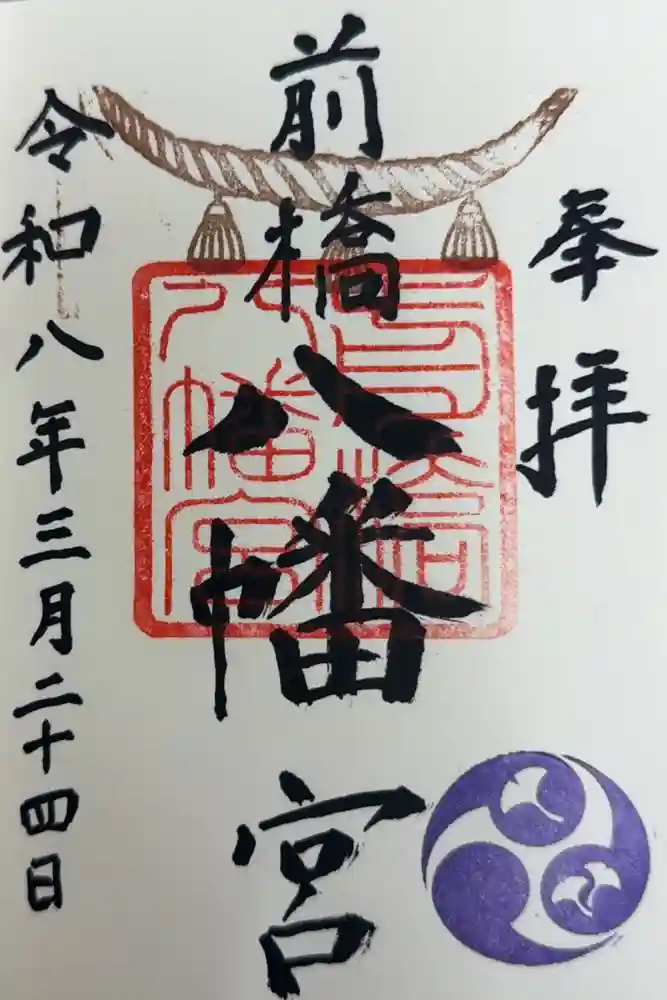 奉拝
前橋八幡宮
令和八年三月二十四日
前橋
八幡宮